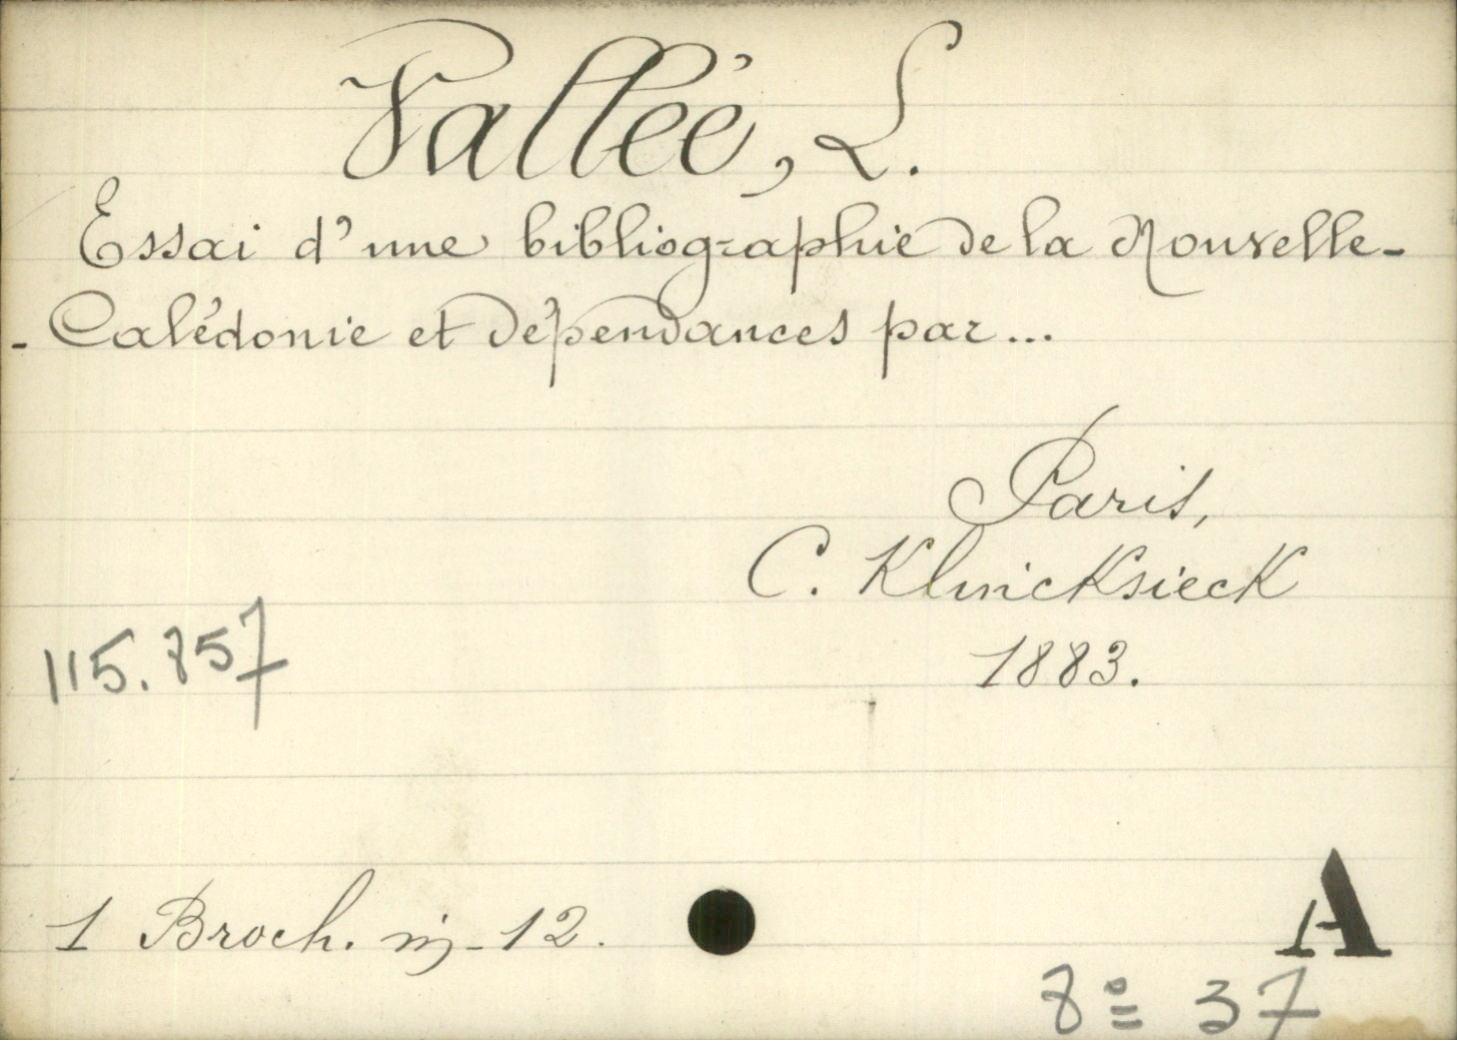 Vallée, L.
Essai d'une bibliographie de la Nouvelle-
-Calédonie et dépendances par...
Paris,
C. Klincksieck
1883.
115.857
1 Broch. in-12.
A
8º 37